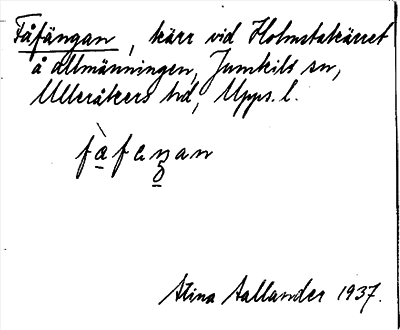 Fåfängan, kärr vid Holmstakärret
å allmänningen, Jumkils sn,
Ulleråkers hd, Upps. l.
fàfeŋan
Stina Aallander 1937.